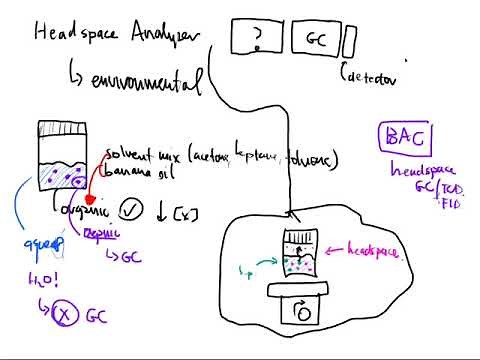 Headspace Analyzer
↳ environmental
?
GC
detector
BAC
headspace
GC/TCD
FID
solvent mix (acetone, heptane, toluene)
banana oil
organic ✓ ↓ [x]
organic
↳ GC
H2O!
↳ X GC
headspace